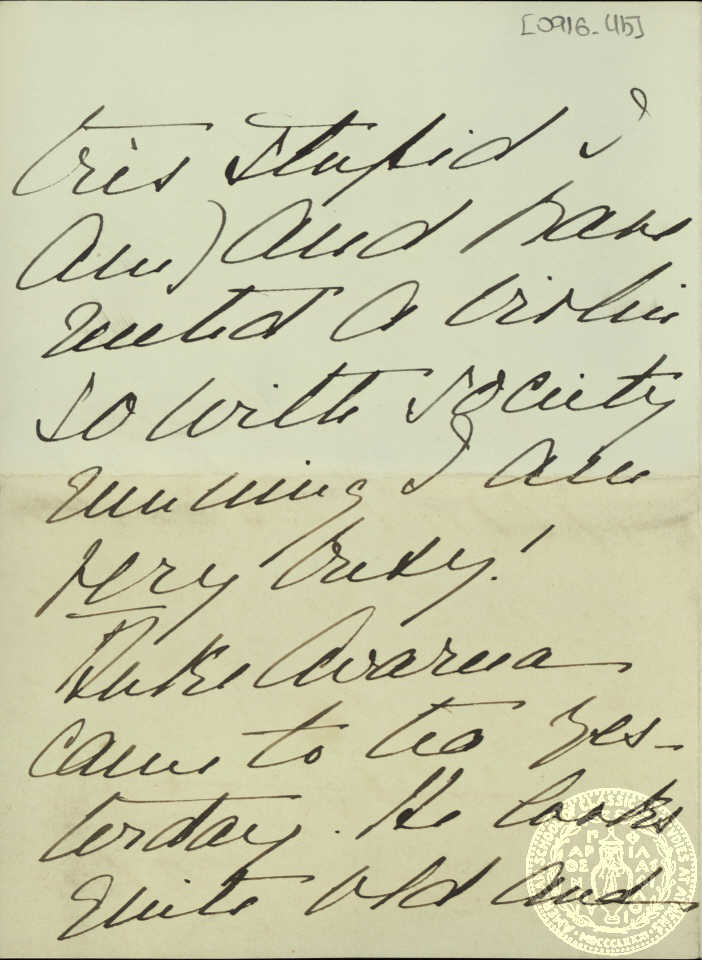 [0916-4b]
très stupid I
am) and have
rented a violin
so with society
running I am
very busy!
Duke Avarna
came to tea yes-
terday. He looks
quite old and